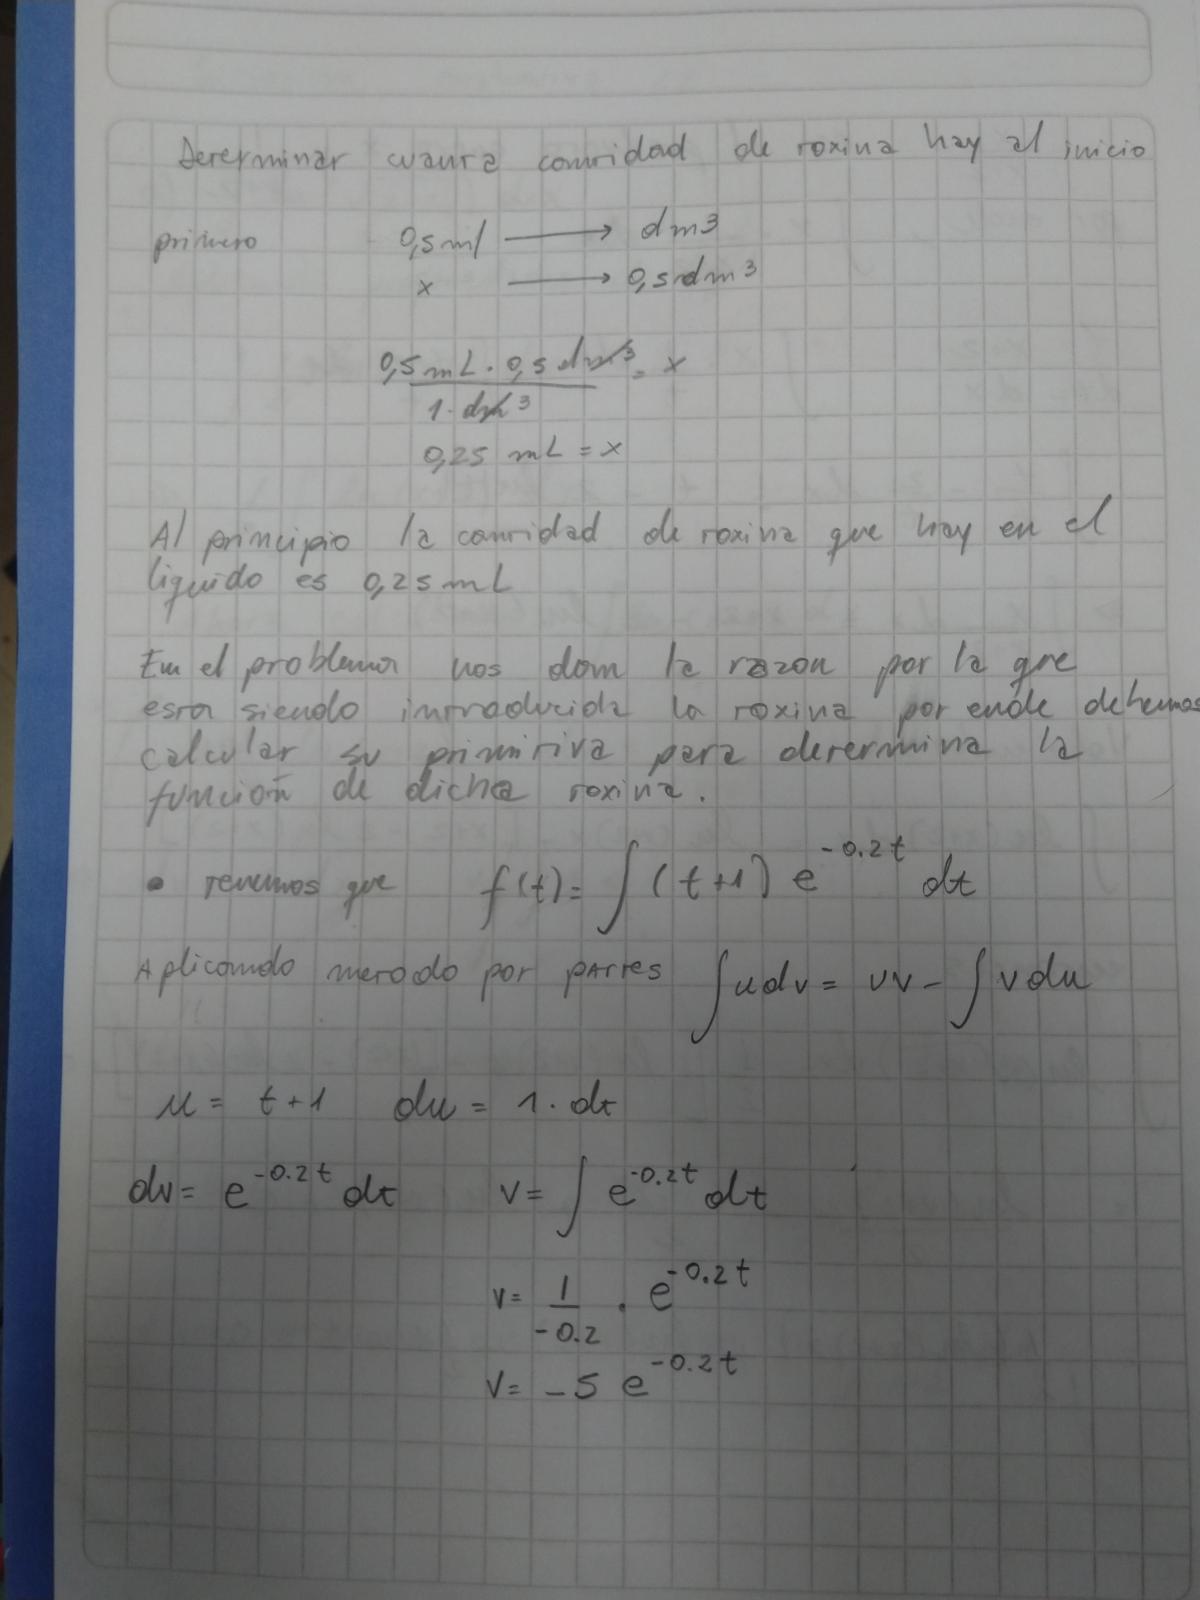 Determinar cuanta cantidad de toxina hay al inicio
primero 0,5 ml → dm3
x → 0,5 dm3
0,5 mL · 0,5 dm3 = x
1 · dm3
0,25 mL = x
Al principio la cantidad de toxina que hay en el
liquido es 0,25 mL
En el problema nos dan la razon por la que
esta siendo introducida la toxina por ende debemos
calcular su primitiva para determina la
función de dicha toxina.
• tenemos que f(t) = ∫ (t+1) e^{-0.2t} dt
Aplicando metodo por partes ∫ u dv = uv - ∫ v du
u = t+1 du = 1. dt
dv = e^{-0.2t} dt v = ∫ e^{-0.2t} dt
v = 1/-0.2 . e^{-0.2t}
v = -5 e^{-0.2t}